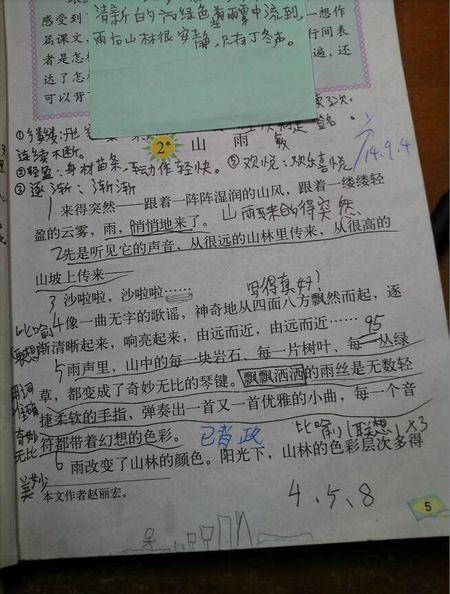 感受到
篇课文，
者是怎
达了怎
可以背
一想作
行间表
遍，还
清新的
绿色
雾中流到，
雨后山林很安静，只有丁冬声。
连续不断。
2* 山雨
②轻盈：身材苗条，动作轻快。⑤欢悦：欢乐喜悦
14.9.4
③逐渐：渐渐
1 来得突然——跟着一阵阵湿润的山风，跟着一缕缕轻
盈的云雾，雨，悄悄地来了。山雨来的得突然
2 先是听见它的声音，从很远的山林里传来，从很高的
山坡上传来——
写得真好！
3 沙啦啦，沙啦啦……
比喻
4 像一曲无字的歌谣，神奇地从四面八方飘然而起，逐
联想
渐清晰起来，响亮起来，由远而近，由远而近……
95
5 雨声里，山中的每一块岩石、每一片树叶、每一丛绿
用词
草，都变成了奇妙无比的琴键。飘飘洒洒的雨丝是无数轻
准确
捷柔软的手指，弹奏出一首又一首优雅的小曲，每一个音
奇妙
无比
符都带着幻想的色彩。
已背
比喻
(联想)
×3
6 雨改变了山林的颜色。阳光下，山林的色彩层次多得
美妙
本文作者赵丽宏。
4、5、8
5